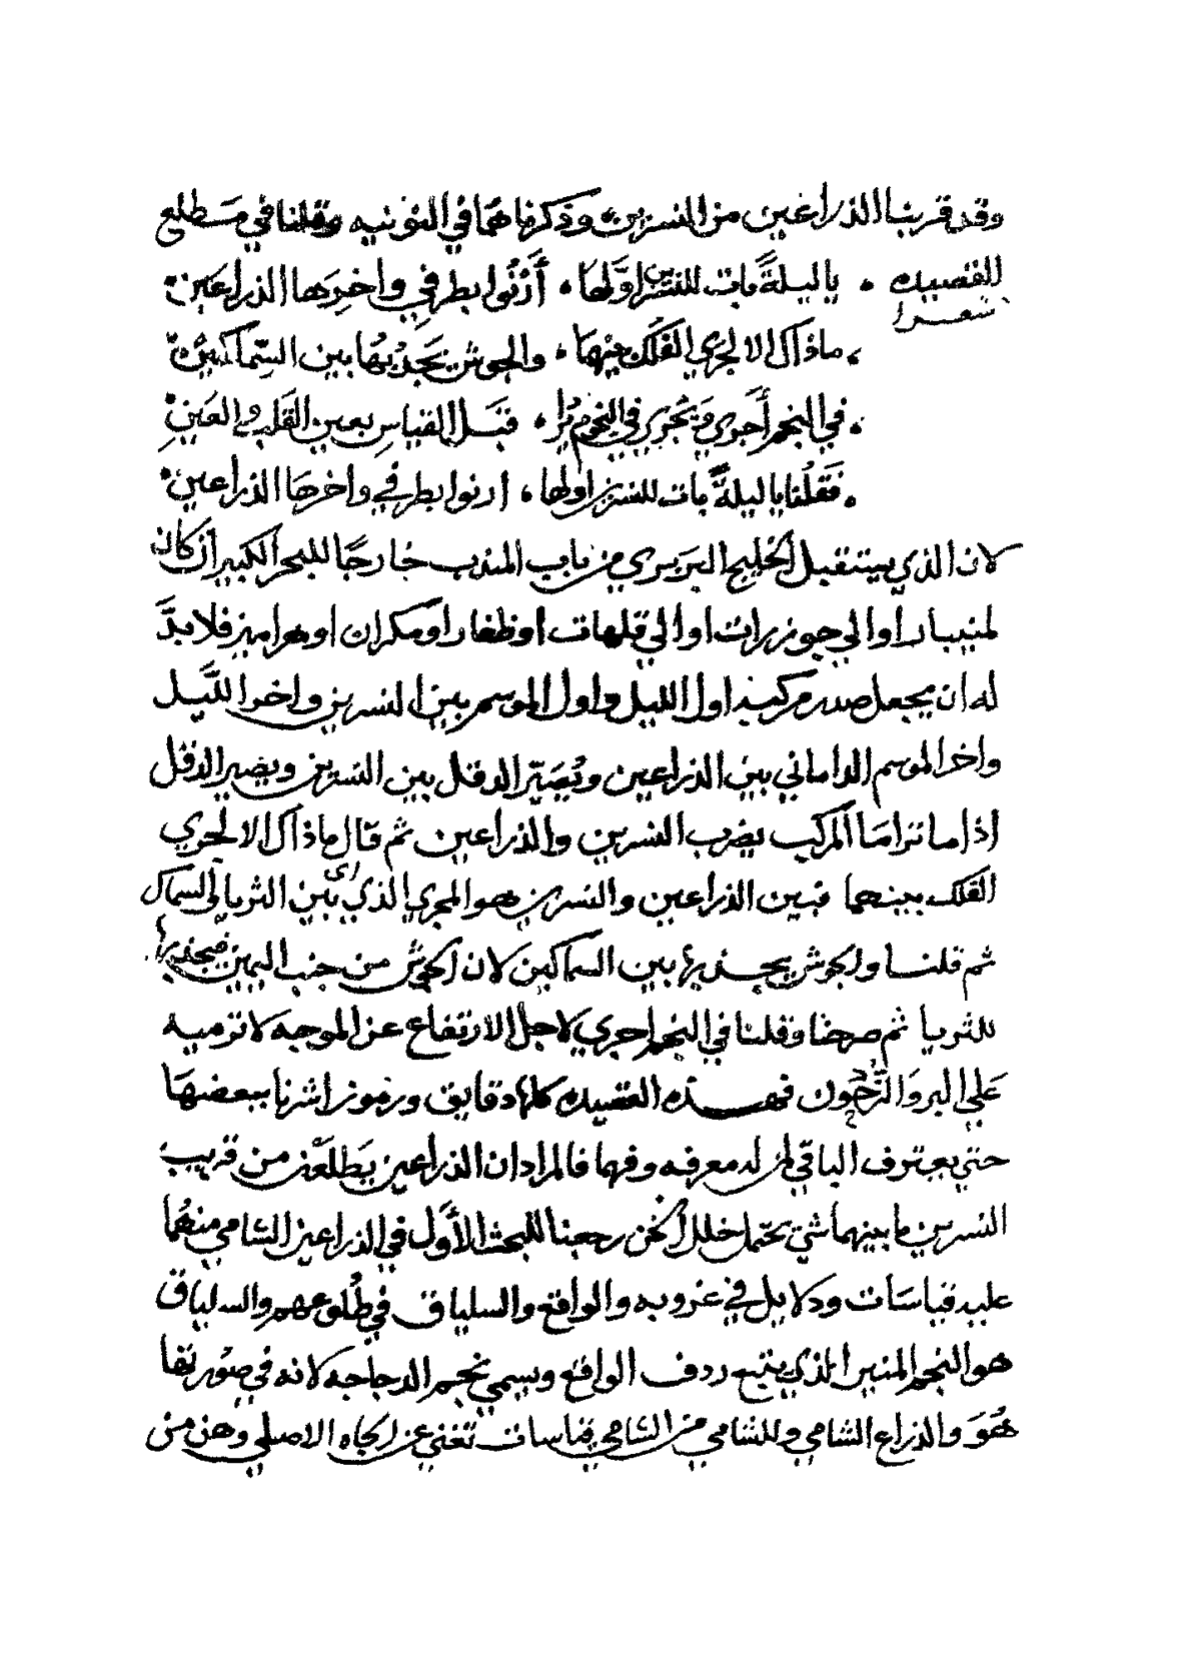 وقد قربنا الذراعين من النسرين وذكرناهما في النونيه وقلنا في مَطلع
القصيده • يا ليلةً بات للنسرين اوَّلها • أَرْنُوا بطرفي واخرِهَا الذراعين •
شعرا
• ماذاك الا لجري الفَلَك بينهما • والجوش يَجذبُها بين السِّماكين •
• في النجم أَجري وَيَجْري في النجوم • قَبَل القياسِ بعين القَلب والعَينِ •
• فَقُلْنا يا ليلةً بات للنسرين اولها • ارنوا بطرفي واخرهَا الذراعين •
لان الذي يستقبل الخليج البربري من باب المندب خارجًا للبحر الكبير ان كان
لمنيبار او الي جوزرات او الي قلهات او ظفار او مكران او هراميز فلا بدَّ
له ان يجعل صدر مركبه اول الليل واول الموسم بين النسرين واخر اللَّيل
واخر الموسم الداماني بين الذراعين ويُصَيّر الدقل بين النسرين ويصير الدقل
اذا ما تراما المركب يضرب النسرين والذراعين ثم قال ماذاك الا لجري
الفلك بينهما فبين الذراعين والنسرين هو المجري الذي بين اي الثريا الي السماك
ثم قلنا والجوش يجذبها بين السماكين لان الجوش من جنب اليمين فيجذبها
للثريا ثم صرحنا وقلنا في النجم اجري لاجل الارتفاع عن الموجه لا ترميه
عَلي البر وَالزَّحون فهذه القصيده كلها دقايق ورموز اشرنا ببعضهَا
حتي يعترف الباقي لمن له معرفه وفها فالمراد ان الذراعين يَطلعَن من قريب
النسرين ما بينهما شي يحتمل خلل الخن رجعنا للبحث الأوَّل في الذراعين الشامي منهُما
عليه قياسَات ودلايل في غروبه والواقع والسلياق في طُلوعهم والسلياق
هو النجم المنير الذي يتبع ردف الواقع ويسمي نجم الدجاجه لانه في صُورتها
هُوَ والذراع الشامي وللشامي من الشامي قياسات تغني عن الجاه الاصلي وهن من